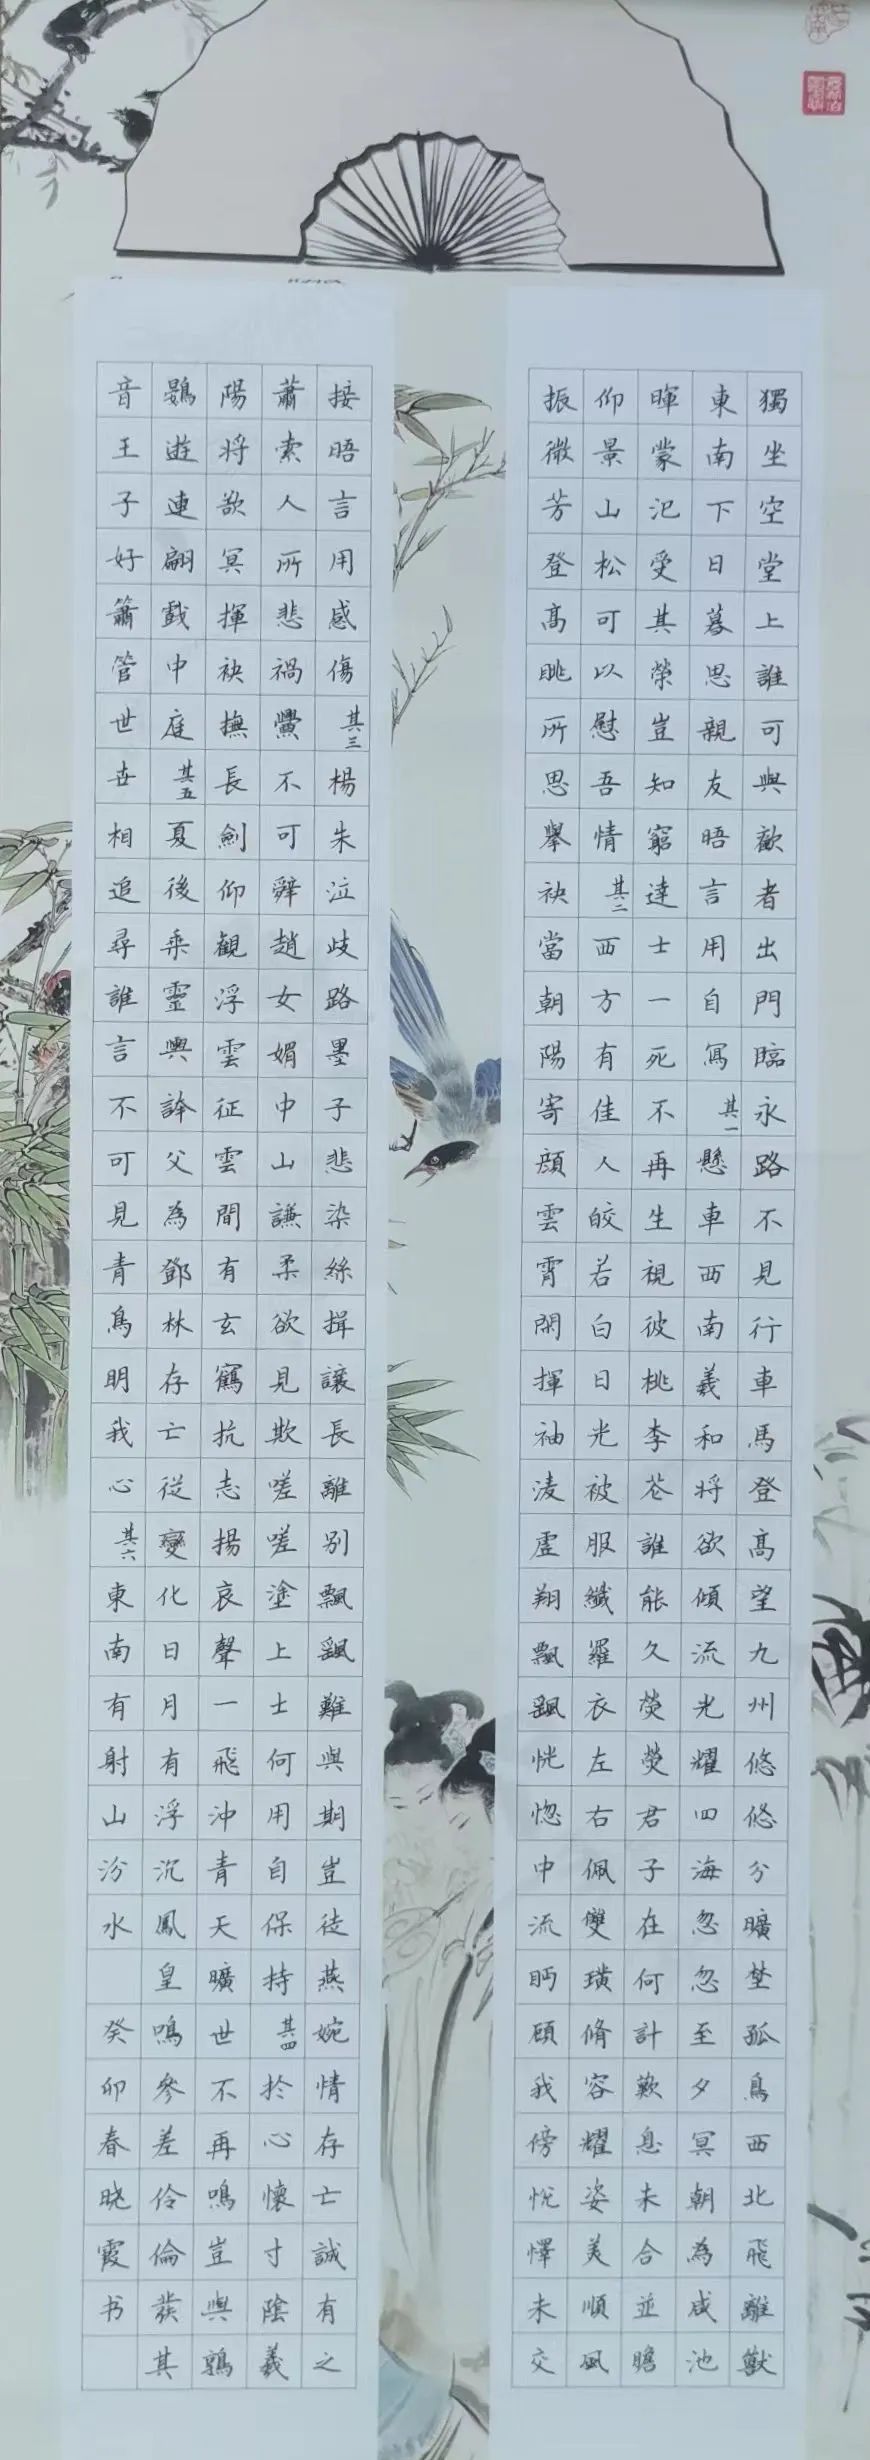 獨坐空堂上誰可與歡者出門臨永路不見行車馬登高望九州悠悠分曠埜孤鳥西北飛離獸
東南下日暮思親友晤言用自寫其一懸車西南羲和將欲傾流光耀四海忽忽至夕冥朝為咸池
暉蒙汜受其榮豈知窮達士一死不再生視彼桃李花誰能久熒熒君子在何計歎息未合並瞻
仰景山松可以慰吾情其二西方有佳人皎若白日光被服纖羅衣左右佩雙璜脩容耀姿美順風
振微芳登高眺所思舉袂當朝陽寄顏雲霄閑揮袖淩虛翔飄颻恍惚中流眄顧我傍悅懌未交
接晤言用感傷其三楊朱泣歧路墨子悲染絲揖讓長離別飄颻難與期豈徒燕婉情存亡誠有之
蕭索人所悲禍釁不可辭趙女媚中山謙柔欲見欺嗟嗟塗上士何用自保持其四於心懷寸陰羲
陽將欲冥揮袂撫長劍仰觀浮雲征雲間有玄鶴抗志揚哀聲一飛沖青天曠世不再鳴豈與鶉
鷃遊連翩戲中庭其五夏後乘靈輿誇父為鄧林存亡從變化日月有浮沉鳳皇鳴參差伶倫發其
音王子好簫管世世相追尋誰言不可見青鳥明我心其六東南有射山汾水 癸卯春晓霞书